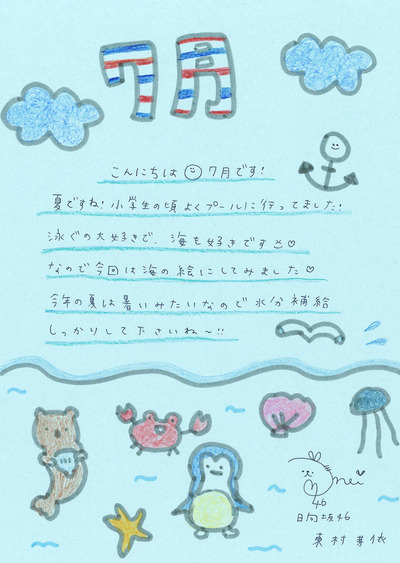 7月
こんにちは☺7月です!
夏ですね!小学生の頃よくプールに行ってました!
泳ぐの大好きで、海も好きです♡
なので今回は海の絵にしてみました♡
今年の夏は暑いみたいなので水分補給
しっかりして下さいね〜!!
mei
46
日向坂46
東村芽依